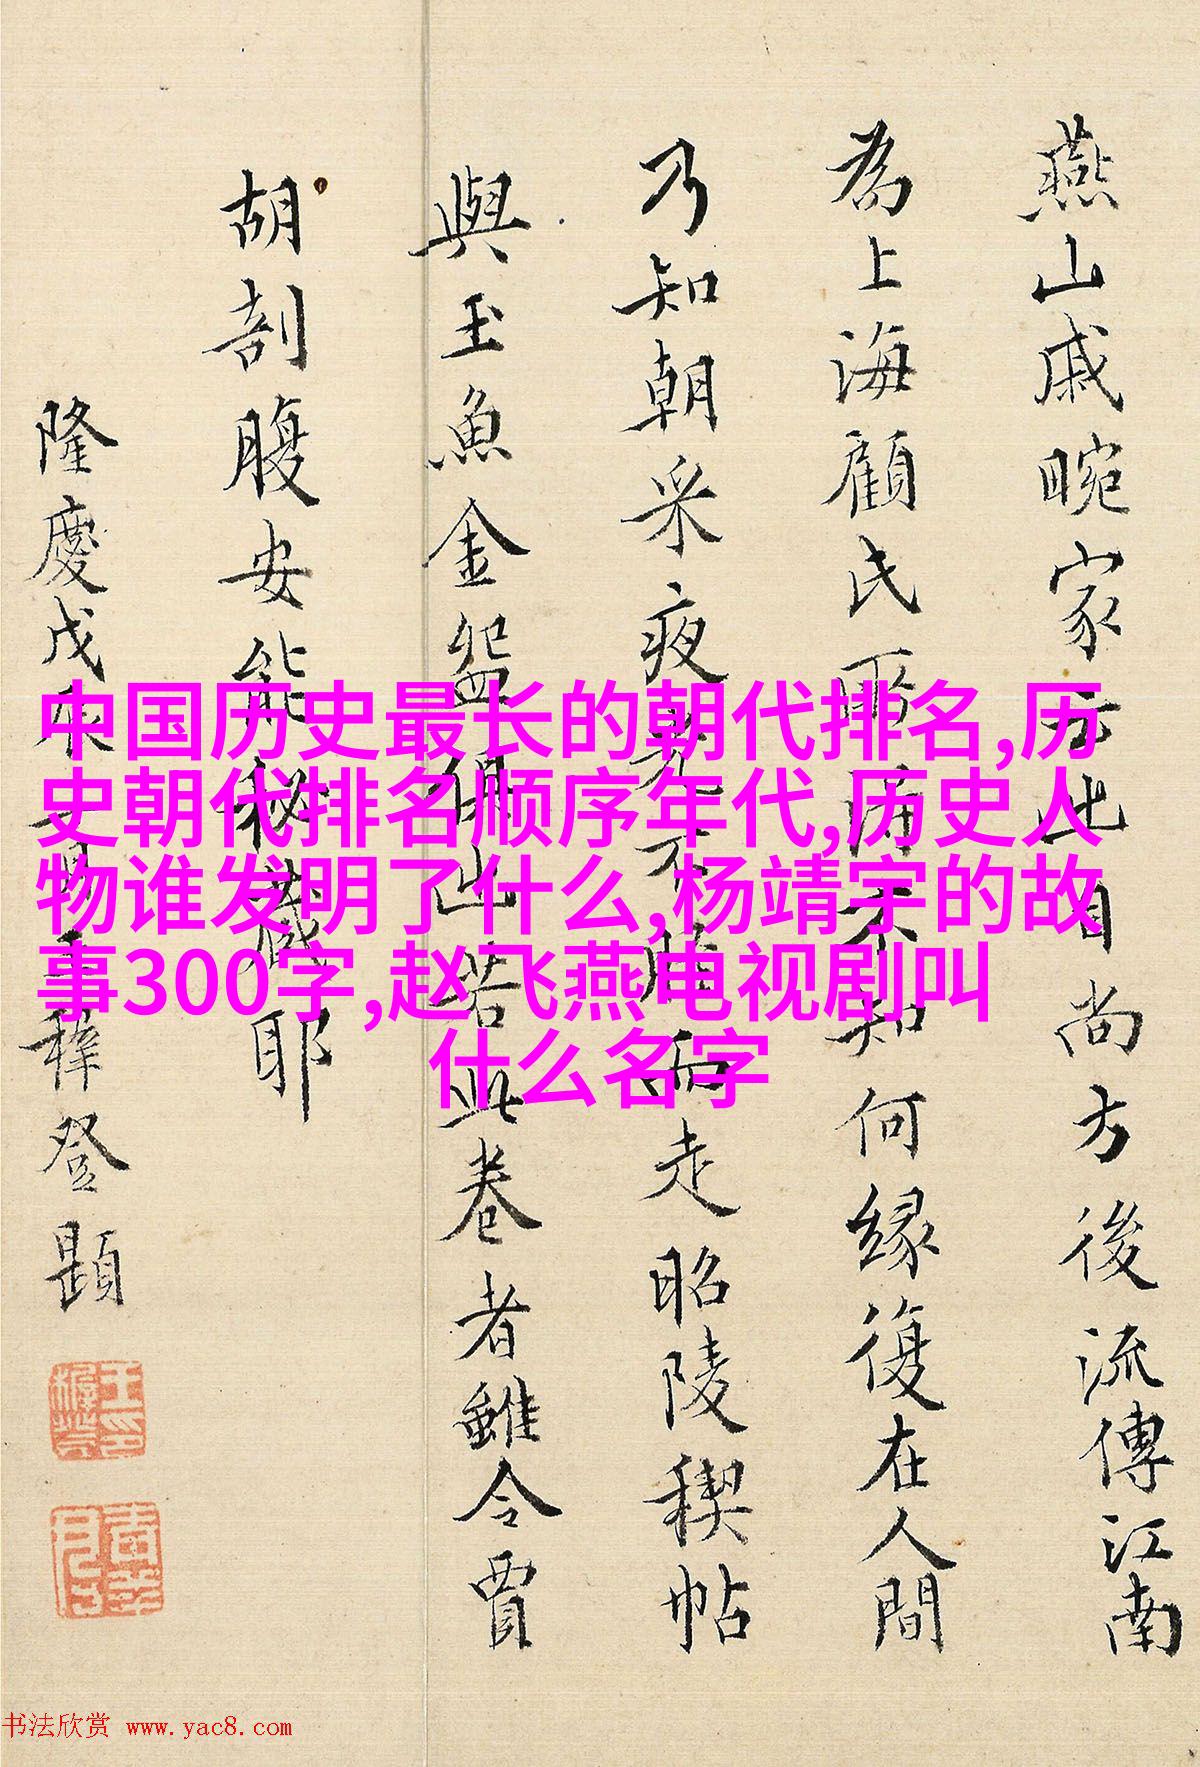 燕山戚畹家云此自尚方後流傳江南
為上海顧氏所得不知何緣復在人間
乃知朝采夜光不脛而走昭陵稧帖
與玉魚金盌俱出若此卷者雖令賈
胡剖腹安能秘藏耶
隆慶戊辰王穉登題
中国历史最长的朝代排名,历
史朝代排名顺序年代,历史人
物谁发明了什么,杨靖宇的故
事300字,赵飞燕电视剧叫
什么名字
书法欣赏 www.yac8.com